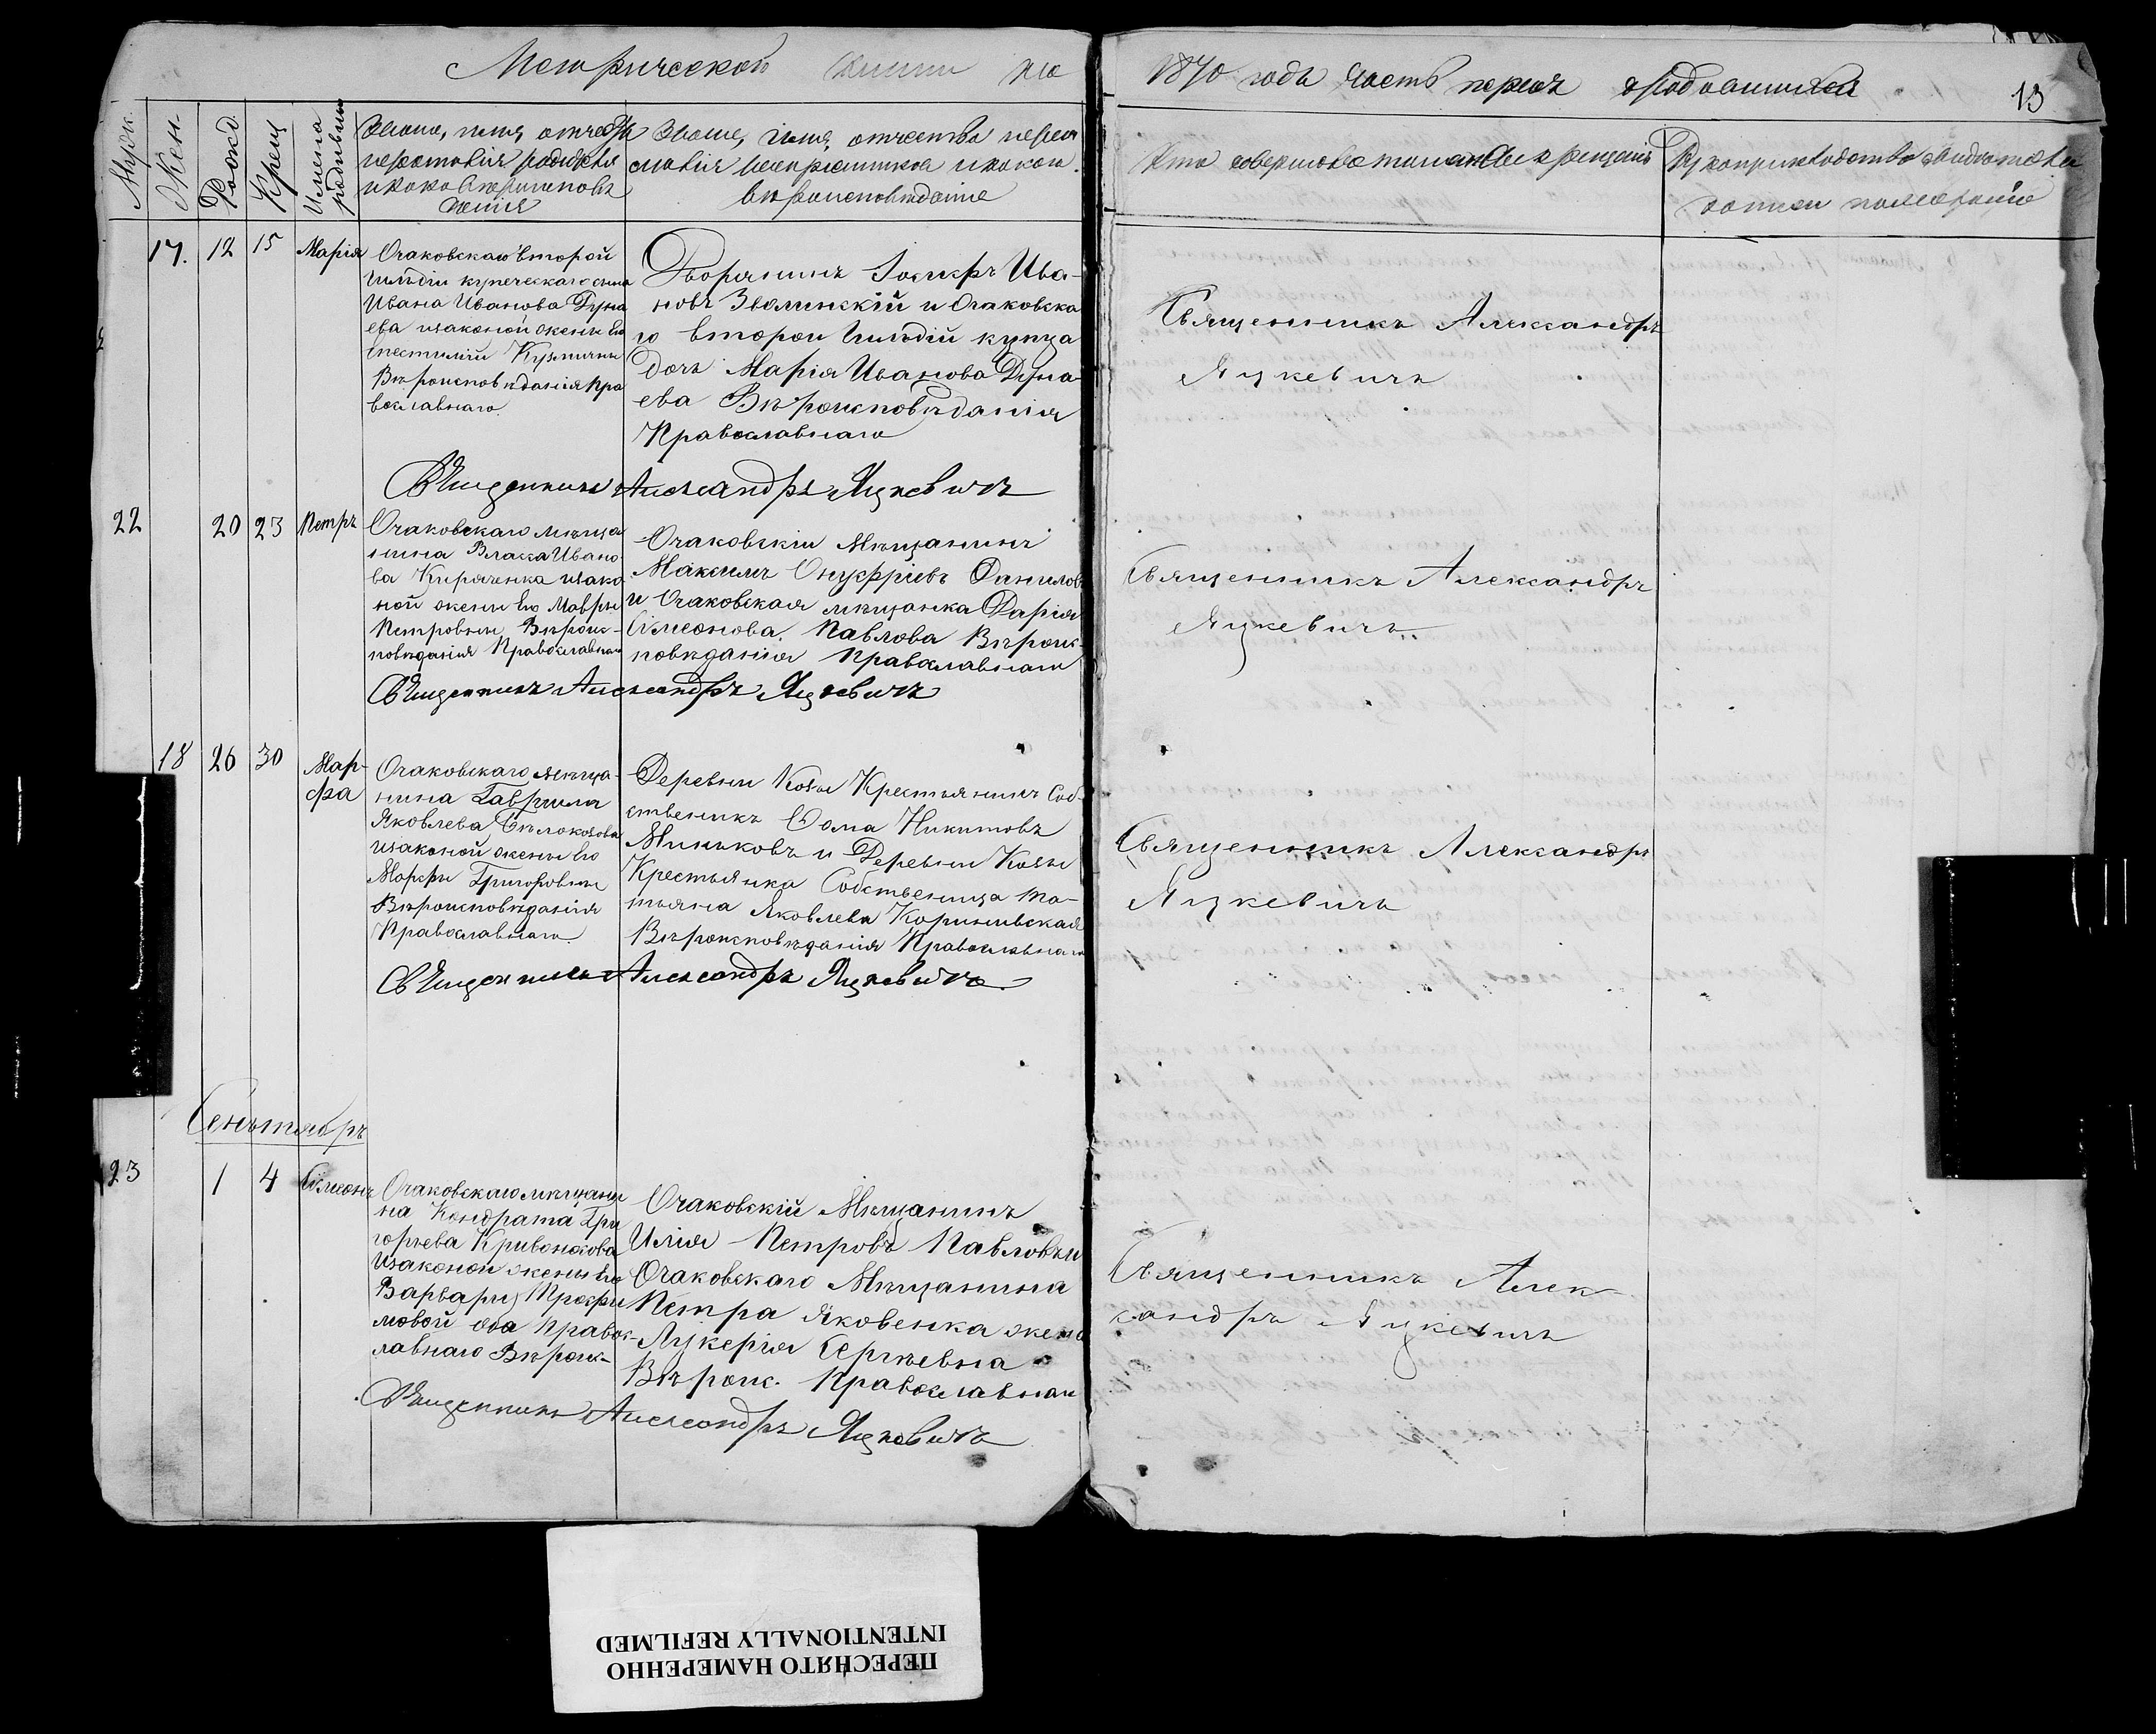 Метрической книги на
1870 годъ часть первая о родившихся
13
Муж.
Жен.
Рожд.
Крещ
Имена родивших
Званіе, имя, отчество
и какого вѣроисповѣ
Званіе, имя, отчество
вѣроисповѣданіе
Кто совершалъ таинство крещенія
Рукоприкладство свидѣтелей
17. 12 15 Марія
Очаковскаго второй
гильдіи купеческаго сына
Ивана Иванова Дуна
ева и законой жены его
Кузминны
Вѣроисповѣданія Пра
вославнаго.
Дворянинъ Іосифъ Ива-
новъ Зволинскій и Очаковска
го второй гильдій купца
дочь Марія Иванова Дуна-
ева Вѣроисповѣданія
Православнаго
Священникъ Александръ
Яцкевичъ
Священникъ Александръ Яцкевичъ
22 20 23 Петръ
Очаковскаго мѣща
нина Власа Ивано
ва Кираченка и зако
ной жены его Мавры
Петровны Вѣроис-
повѣданія Православнаго
Очаковскій Мѣщанинъ
Максимъ Онуфріевъ Даниловъ
и Очаковская мѣщанка Дарія
Симеонова Павлова Вѣроис-
повѣданія Православнаго
Священникъ Александръ
Яцкевичъ
Священникъ Александръ Яцкевичъ
18 26 30 Мар-
фа
Очаковскаго мѣща-
нина Гавріила
Яковлева Бѣлокозова
и законой жены его
Марфы Григоровны
Вѣроисповѣданія
Православнаго.
Деревни Козы Крестьянинъ Соб-
ственикъ Фома Никитовъ
Миньковъ и Деревни Козы
Крестьянка Собственица Та-
тьяна Яковлева
Вѣроисповѣданія Православнаго
Священникъ Александръ
Яцкевичъ
Священникъ Александръ Яцкевичъ
Сентябръ
23 1 4 Симеонъ
Очаковскаго мѣщани
на Кондрата Гри
горьева Кривоножова
и законой жены его
Варвары Трофи
мовой оба Правос-
лавнаго Вѣроис-
Очаковскій Мѣщанинъ
Илія Петровъ Павловъ и
Очаковскаго Мѣщанина
Петра Яковенка жена
Лукерія Сергѣевна
Вѣроис. Православнаго
Священникъ Алек-
сандръ Яцкевичъ
Священникъ Александръ Яцкевичъ
ПЕРЕСНЯТО НАМЕРЕННО
INTENTIONALLY REFILMED